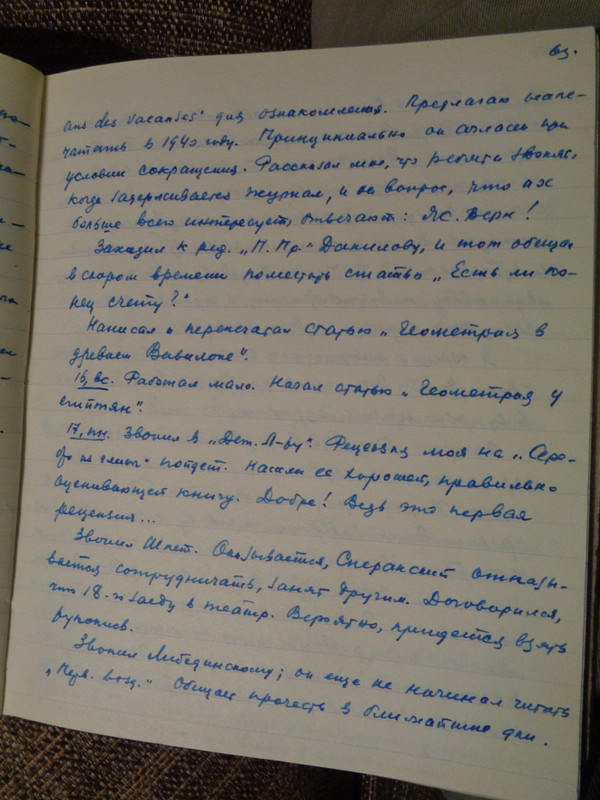 63.
ans des vacanses" для ознакомления. Предлагаю напе-
чатать в 1940 году. Принципиально он согласен при
условии сокращения. Рассказал мне, что ребята звонят,
когда задерживается журнал, и на вопрос, что их
больше всего интересует, отвечают: Ж. Верн!
Заходил к ред. „П. Пр." Данилову, и тот обещал
в скором времени поместить статью „Есть ли ко-
нец счету?"
Написал и перепечатал статью „Геометрия в
древнем Вавилоне".
16, вс. Работал мало. Начал статью „Геометрия у
египтян".
17, пн. Звонил в „Дет. Л-ру". Рецензия моя на „Сере-
пойдет. Нашли ее хорошей, правильно
оценивающей книгу. Добре! Ведь это первая
рецензия...
Звонил Шпет. Оказывается, Сперанский отказы-
вается сотрудничать, занят другим. Договорился,
что 18-го заеду в театр. Вероятно, придется взять
рукопись.
Звонил Либединскому; он еще не начинал читать
„Чуд. возд." Обещает прочесть в ближайшие дни.